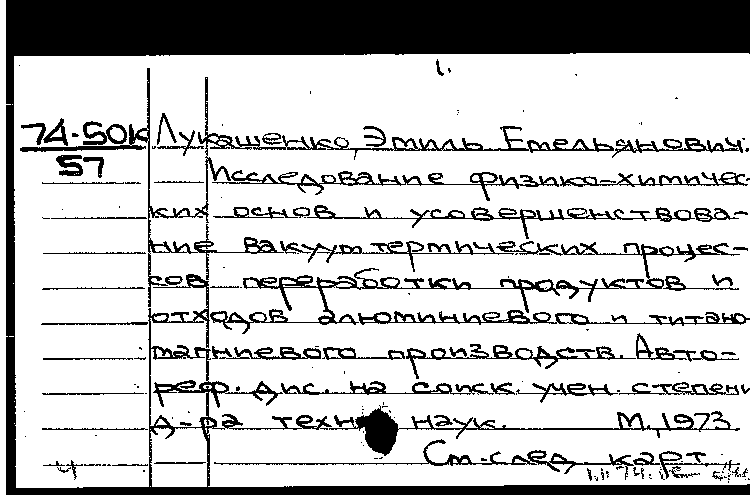 1.
74-50к Лукашенко, Эмиль Емельянович.
57
Исследование физико-химичес-
ких основ и усовершенствова-
ние вакуумтермических процес-
сов переработки продуктов и
отходов алюминиевого и титано-
магниевого производств. Авто-
реф. дис. на соиск. учен. степени
д-ра техн наук. М., 1973.
См.след карт.
4